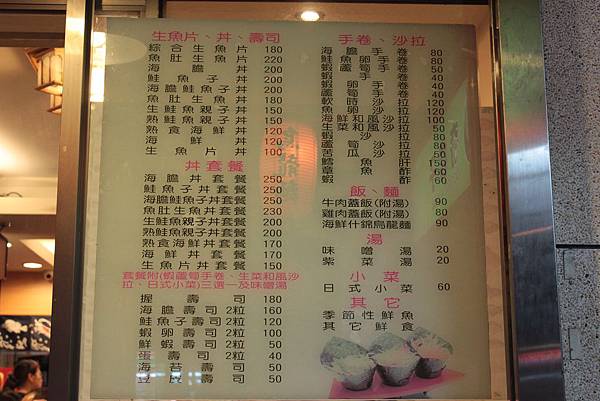 生魚片、丼、壽司
綜合生魚片 180
魚肚生魚片 220
海膽丼 200
鮭魚子丼 200
海膽鮭魚子丼 200
魚肚生魚丼 180
生鮭魚親子丼 150
熟鮭魚親子丼 150
熟食海鮮丼 120
海鮮丼 120
生魚片丼 100
丼套餐
海膽丼套餐 250
鮭魚子丼套餐 250
海膽鮭魚子丼套餐 250
魚肚生魚丼套餐 230
生鮭魚親子丼套餐 200
熟鮭魚親子丼套餐 200
熟食海鮮丼套餐 170
海鮮丼套餐 170
生魚片丼套餐 150
套餐附(蝦蘆荀手卷、生菜和風沙
拉、日式小菜)三選一及味噌湯
握壽司 180
海膽壽司2粒 160
鮭魚子壽司2粒 120
蝦卵壽司2粒 100
鮮蝦壽司2粒 50
蛋壽司2粒 40
海苔壽司 50
豆皮壽司 50
手卷、沙拉
海膽手卷 80
鮭魚卵手卷 80
蝦蘆荀手卷 50
蝦手卷 40
蝦卵手卷 40
蘆荀手卷 40
軟時沙拉 120
魚卵沙拉 100
海鮮和風沙拉 100
生菜和風沙拉 50
蝦沙拉 80
蘆荀沙拉 50
苦瓜沙拉 50
鱈魚肝 150
章魚酢 60
蝦酢 60
飯、麵
牛肉蓋飯(附湯) 90
雞肉蓋飯(附湯) 90
海鮮什錦烏龍麵 90
湯
味噌湯 20
紫菜湯 20
小菜
日式小菜 60
其它
季節性鮮魚
其它鮮食